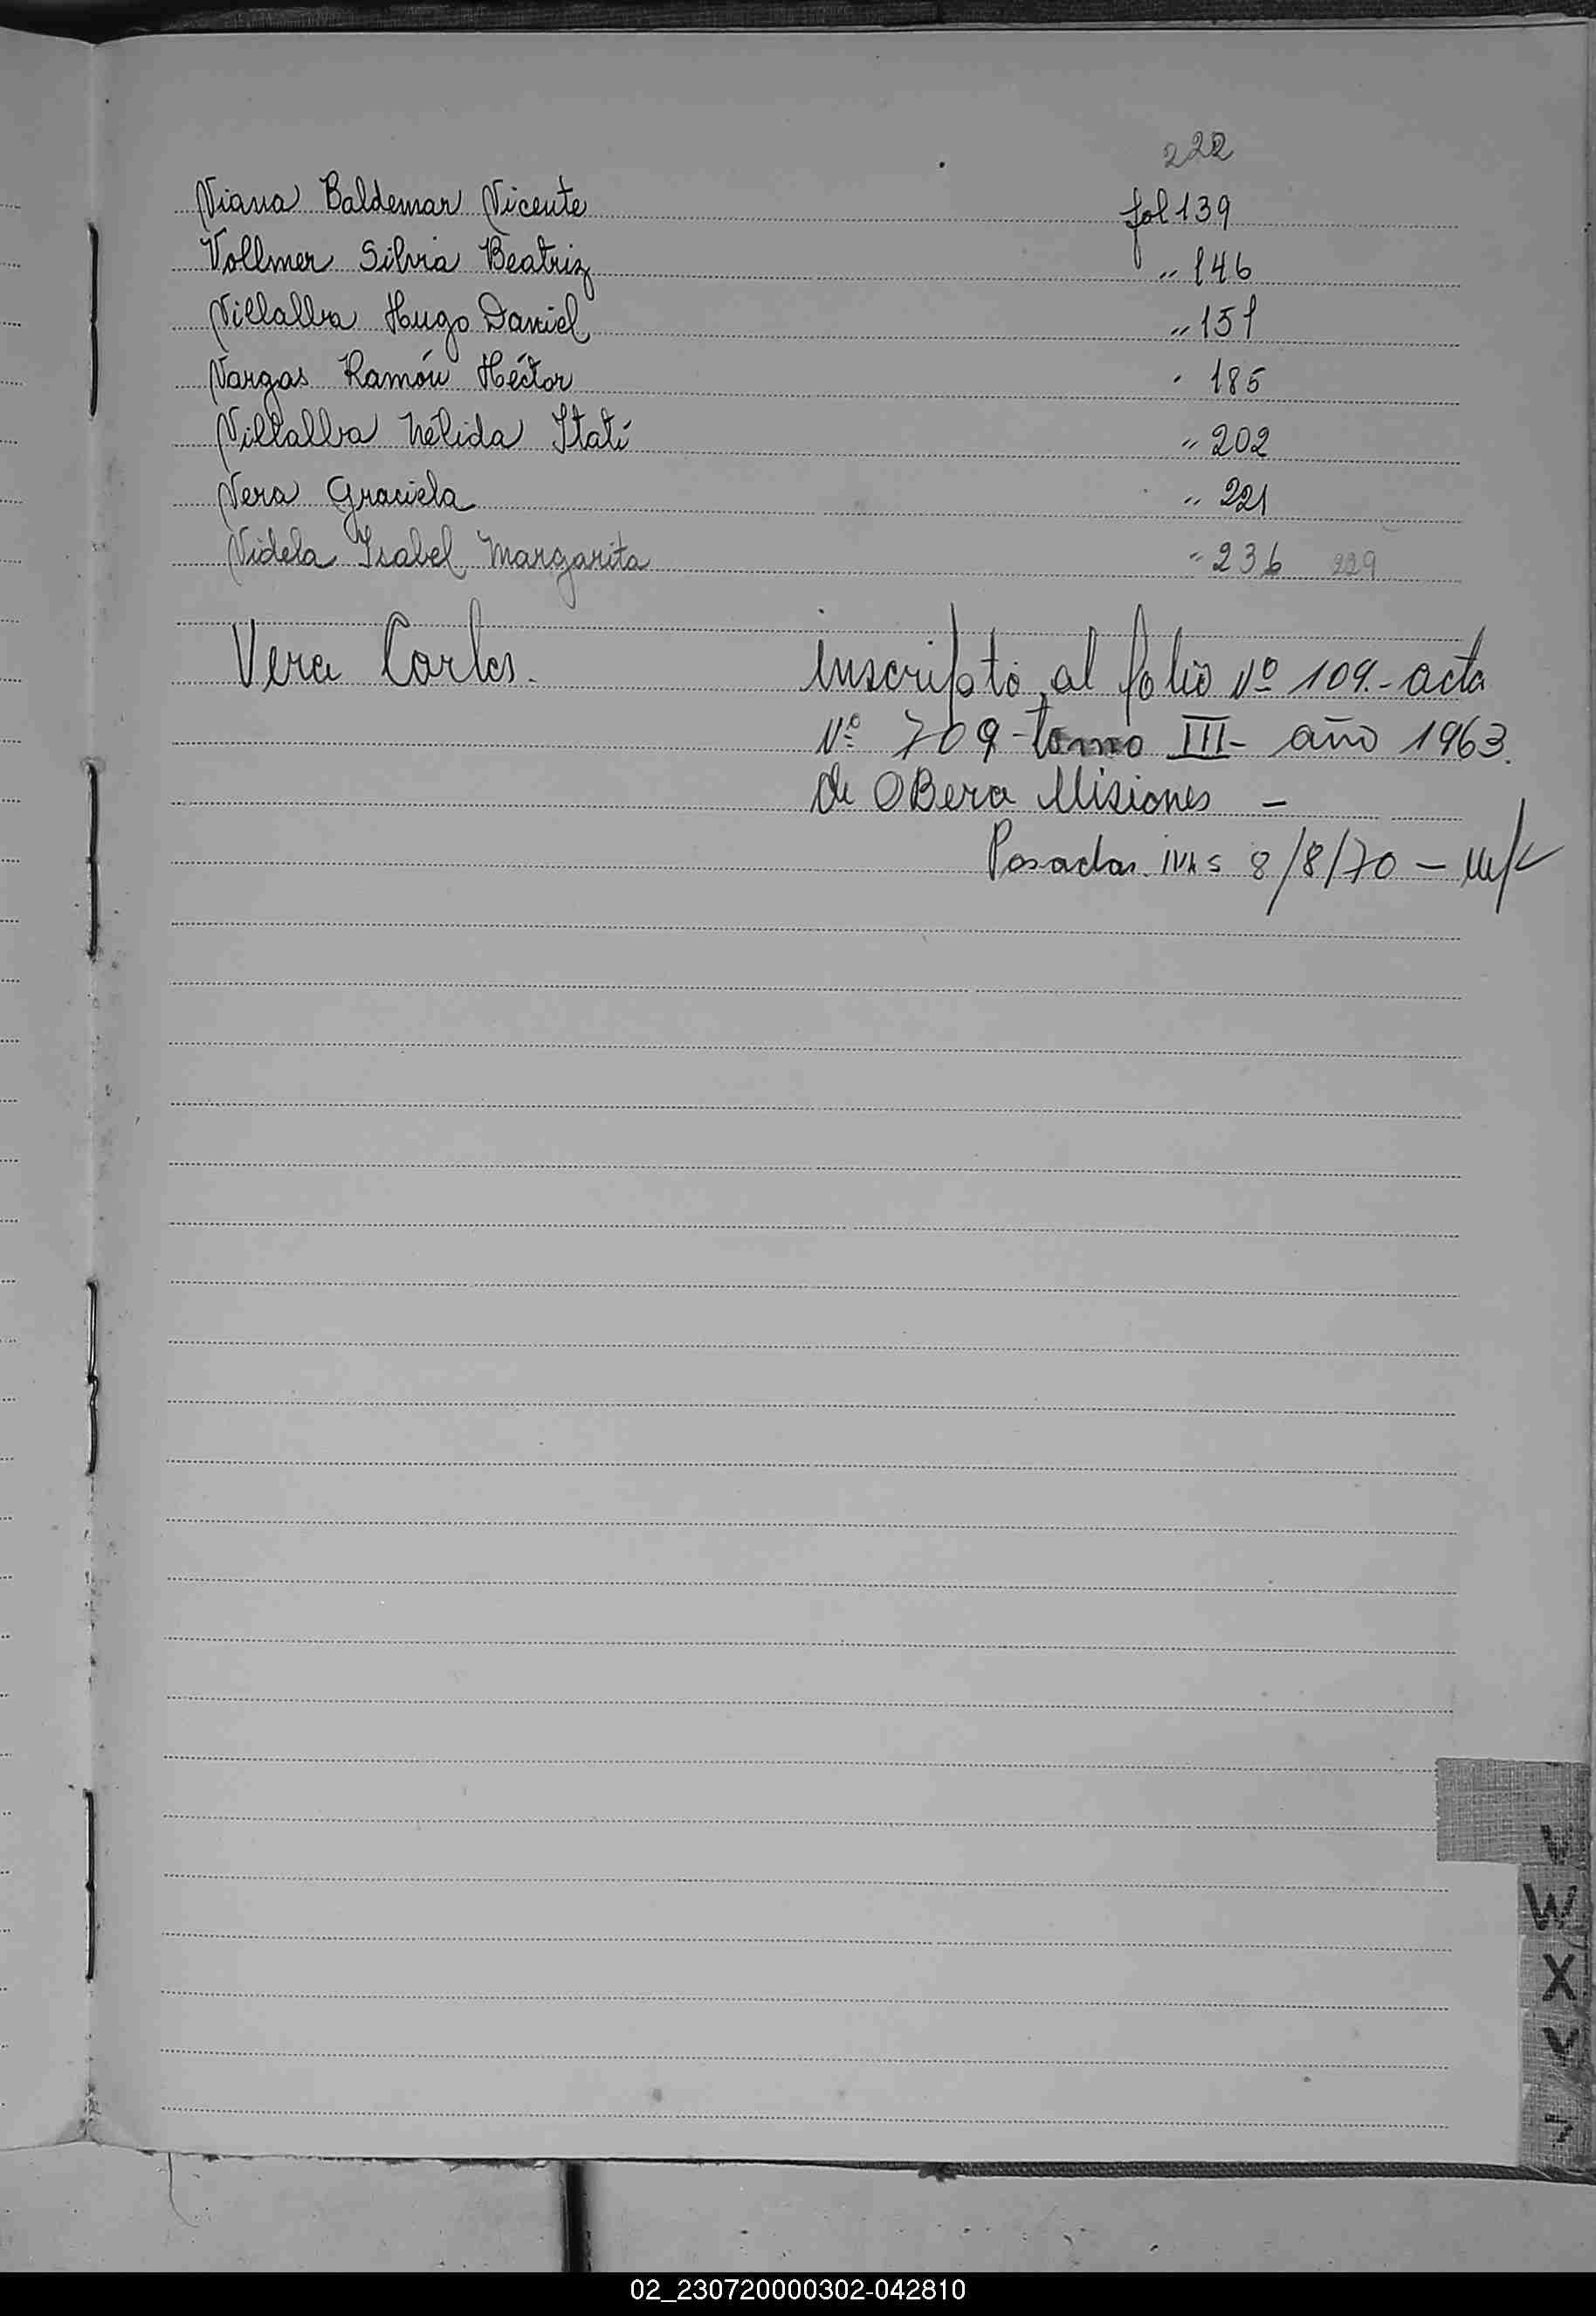 222
Viana Baldemar Vicente fol 139
Vollmer Silvia Beatriz " 146
Villalba Hugo Daniel " 151
Vargas Ramón Héctor " 185
Villalba Nélida Itatí " 202
Vera Graciela " 221
Videla Isabel Margarita " 236 229
Vera Carlos. inscripto al folio Nº 109.- acta
Nº 709 - tomo III - año 1963.
de OBera Misiones -
Posadas 8/8/70 -
V
W
X
Y
Z
02_230720000302-042810